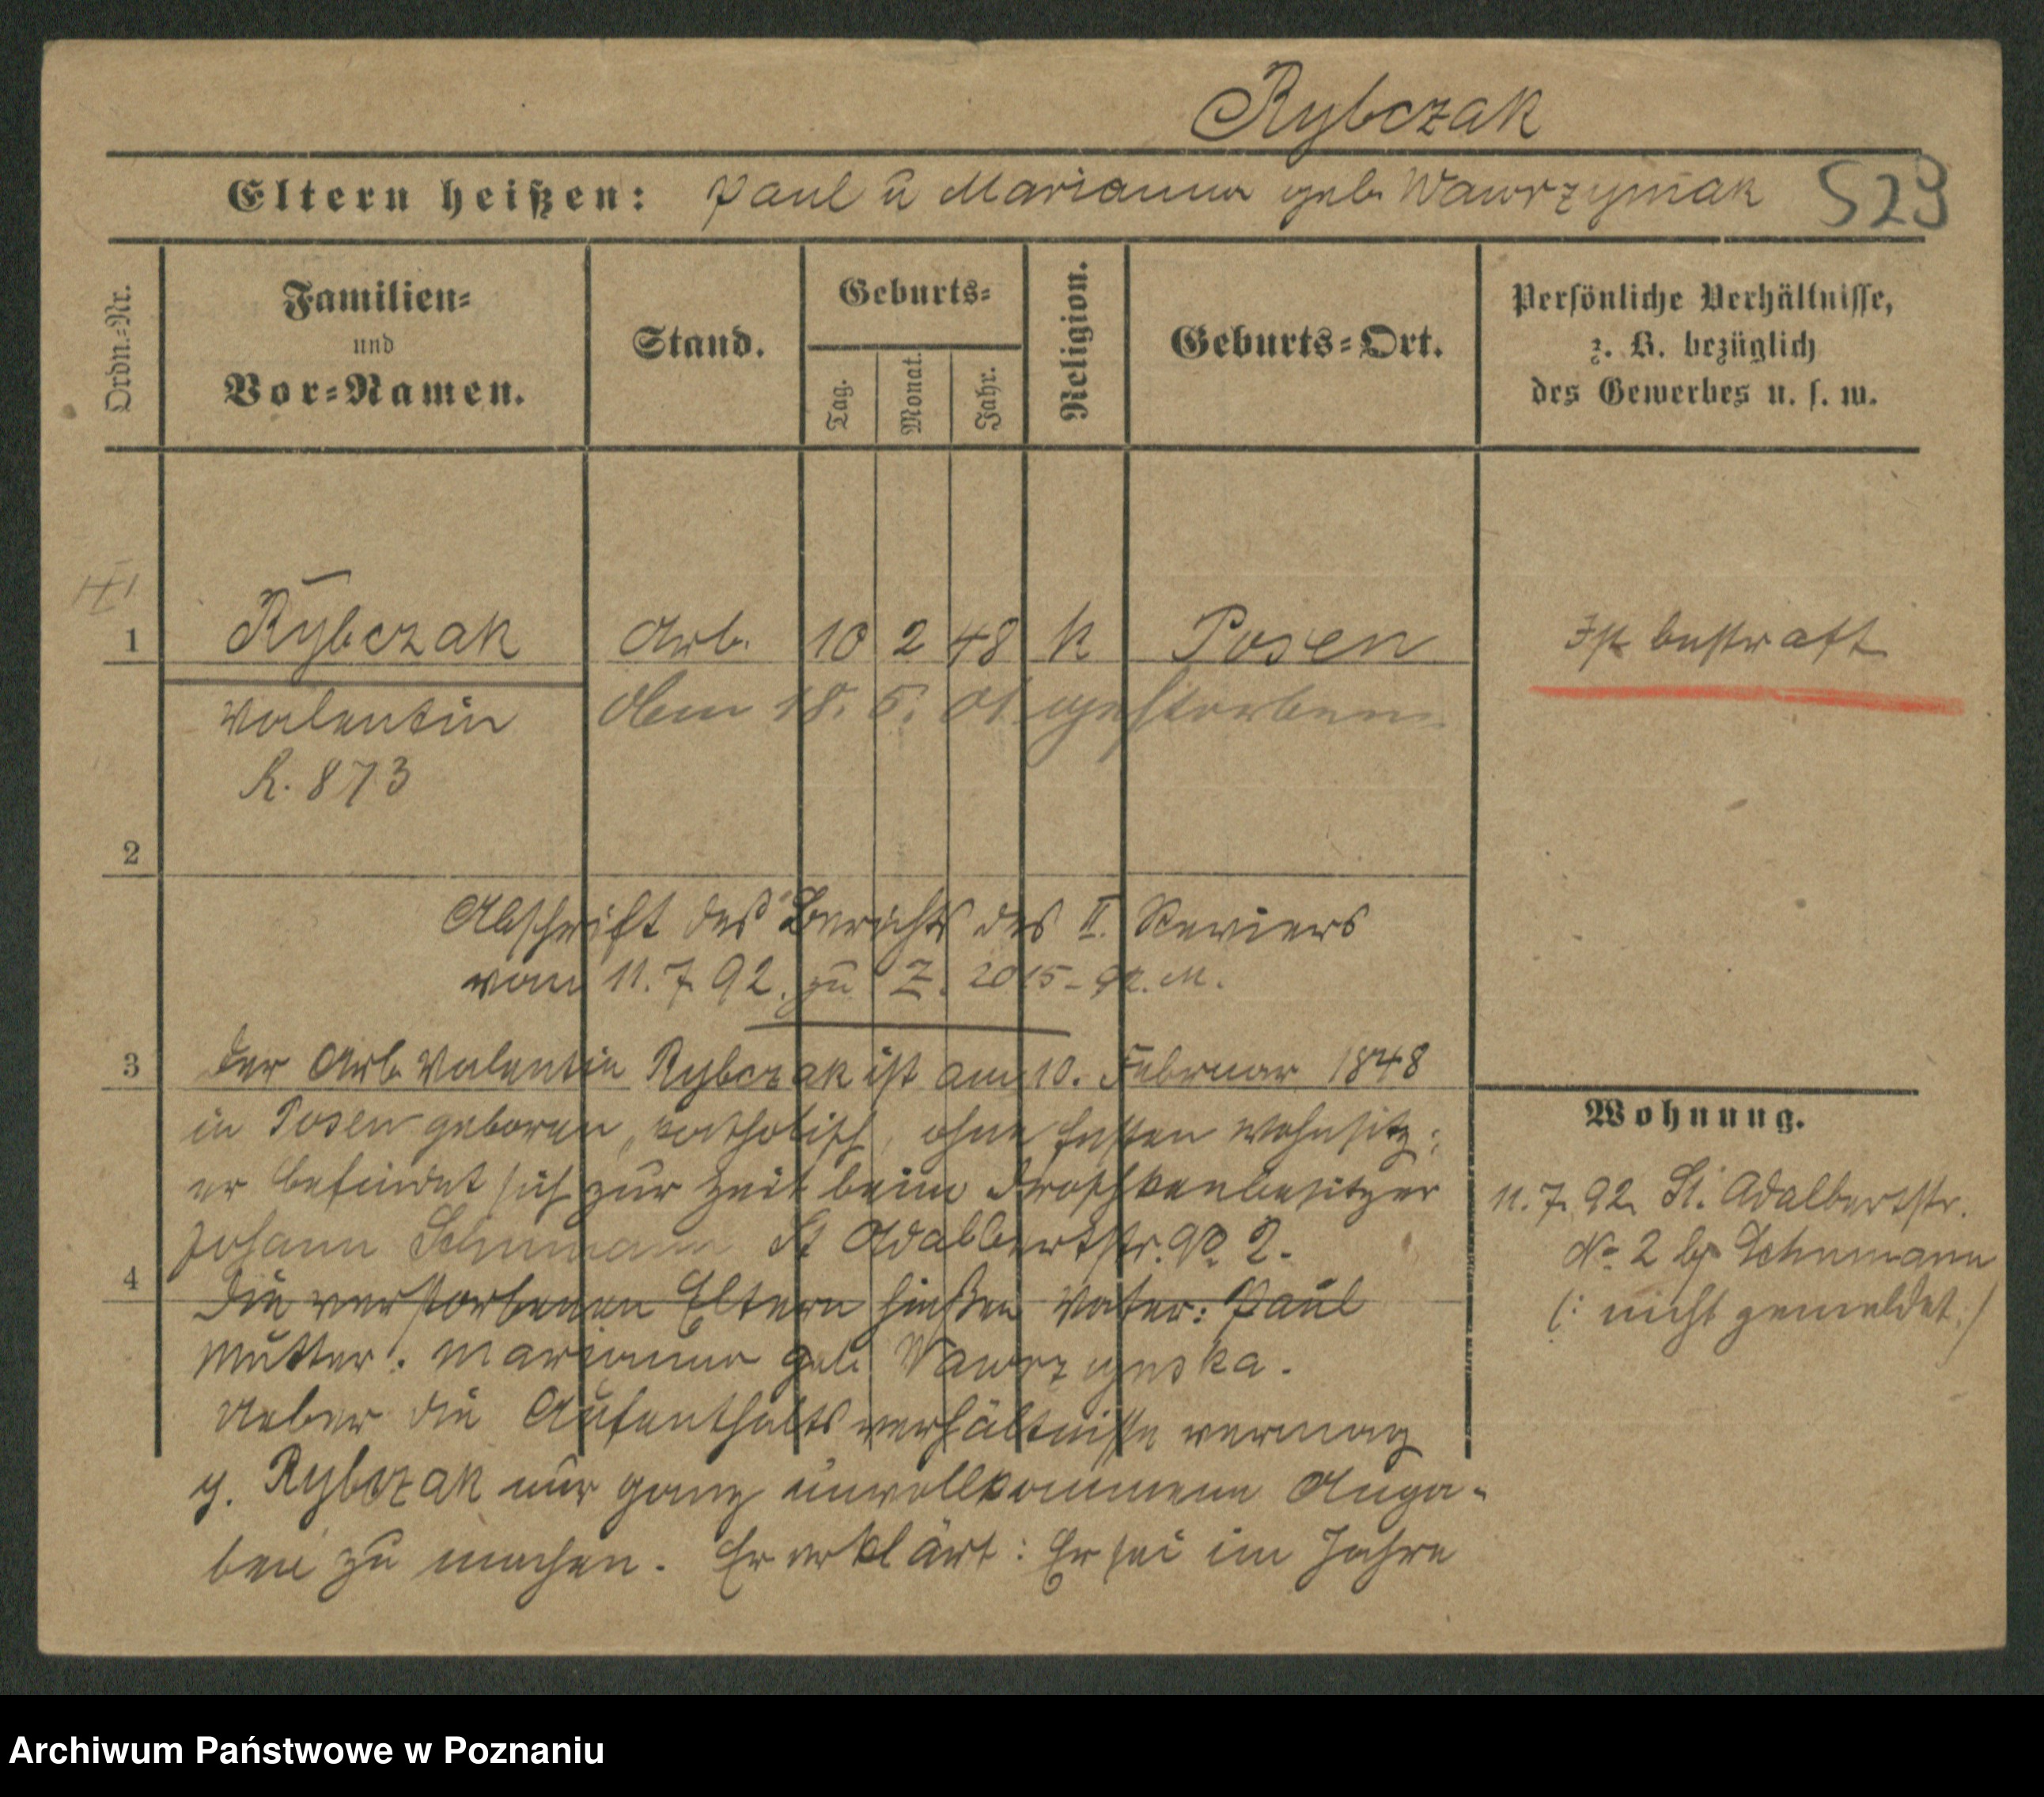 Rybczak
Eltern heißen: Paul u Marianna geb. Wawrzyniak 529
Ordn.-Nr.
Familien-
und
Vor-Namen.
Stand.
Geburts-
Tag.
Monat.
Jahr.
Religion.
Geburts-Ort.
Persönliche Verhältnisse,
z. B. bezüglich
des Gewerbes u. s. w.
1 Rybczak Arb. 10 2 48 k Posen Ist bestraft
Valentin Am 18. 5. 01 gestorben
R. 873
2
Abschrift des Berichts des II. Reviers
vom 11. 7. 92. zu Z. 2015 - 92. M.
3 Der Arb. Valentin Rybczak ist am 10. Februar 1848
in Posen geboren, katholisch, ohne festen Wohnsitz;
er befindet sich zur Zeit beim Droschkenbesitzer
Johann Schumann St Adalbertstr. No 2.
4 Die verstorbenen Eltern hießen Vater: Paul
Mutter: Marianna geb Wawrzynska.
Ueber die Aufenthaltsverhältnisse vermag
p. Rybczak nur ganz unvollkommene Anga-
ben zu machen. Er erklärt: Er sei im Jahre
Wohnung.
11. 7. 92. St. Adalbertstr.
No 2 bei Schumann
(: nicht gemeldet :)
Archiwum Państwowe w Poznaniu